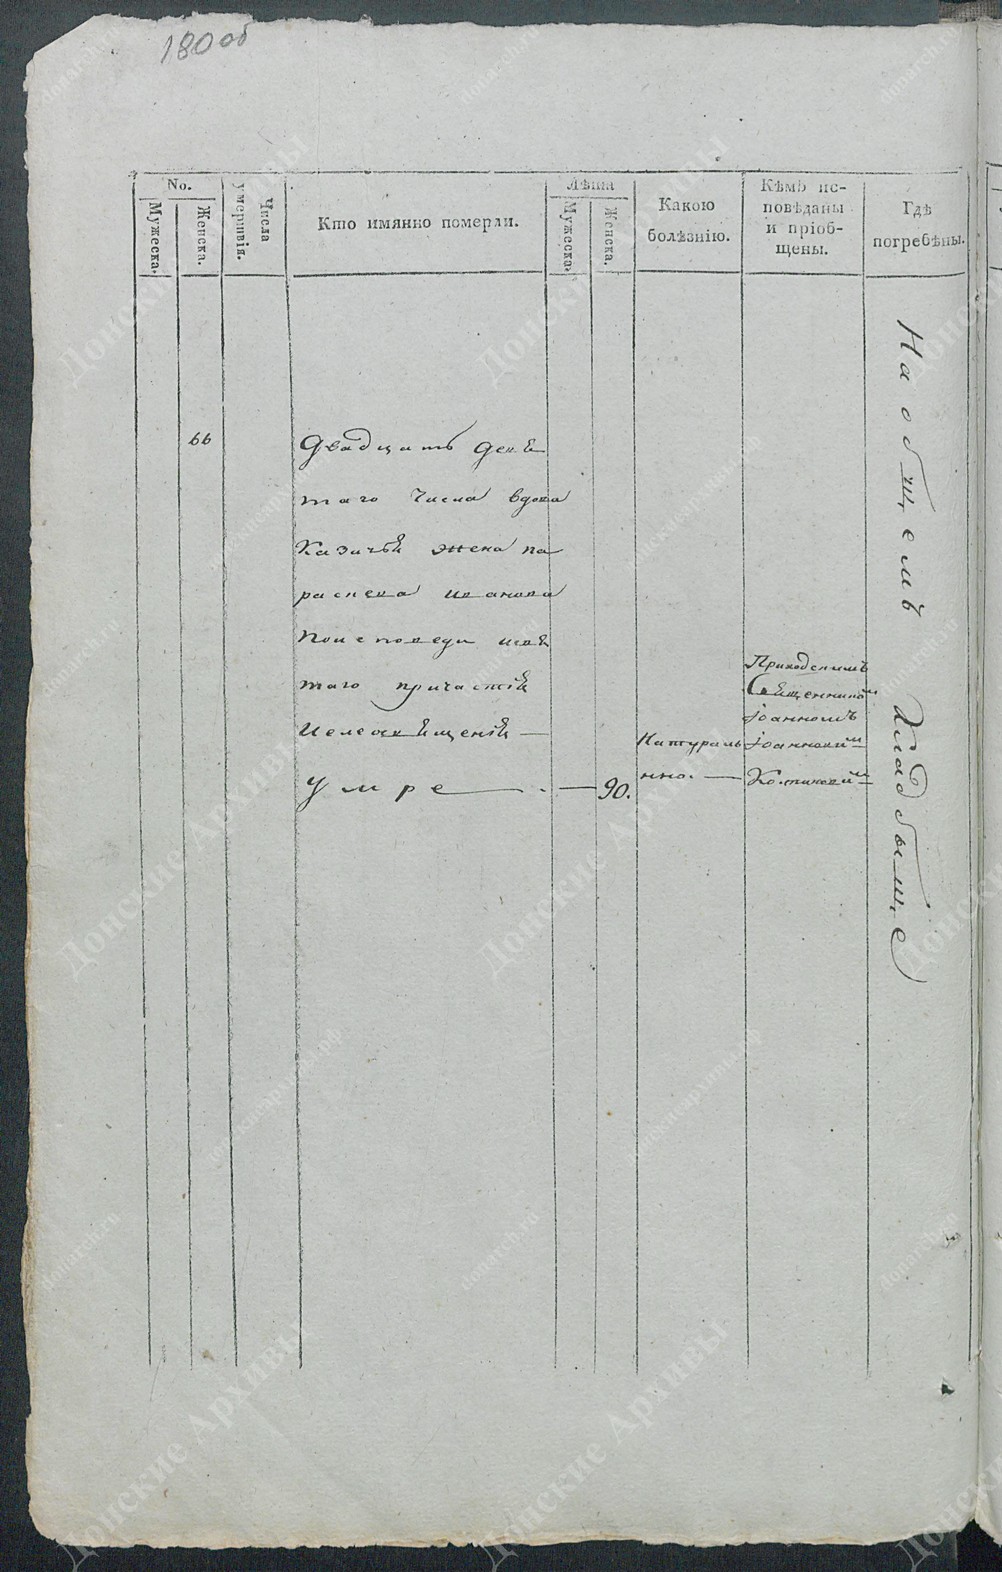 180 об
No.
Мужеска.
Женска.
Числа
умершвія.
Кто имянно померли.
Лѣта
Мужеска.
Женска.
Какою
болѣзнію.
Кѣмъ ис-
повѣданы
и пріоб-
щены.
Гдѣ
погребѣны.
66
Двадцать девя
таго числа вдова
Казачья жена па
раскева иванова
по исповеди исвя
таго причастія
иелеосвященія —
Умре — 90.
Натураль
нно. —
Приходскимъ
Священникомъ
Іоанномъ
Іоанновим
На общемъ Кладбыще
Донские Архивы
donarch.ru
донскиеархивы.рф